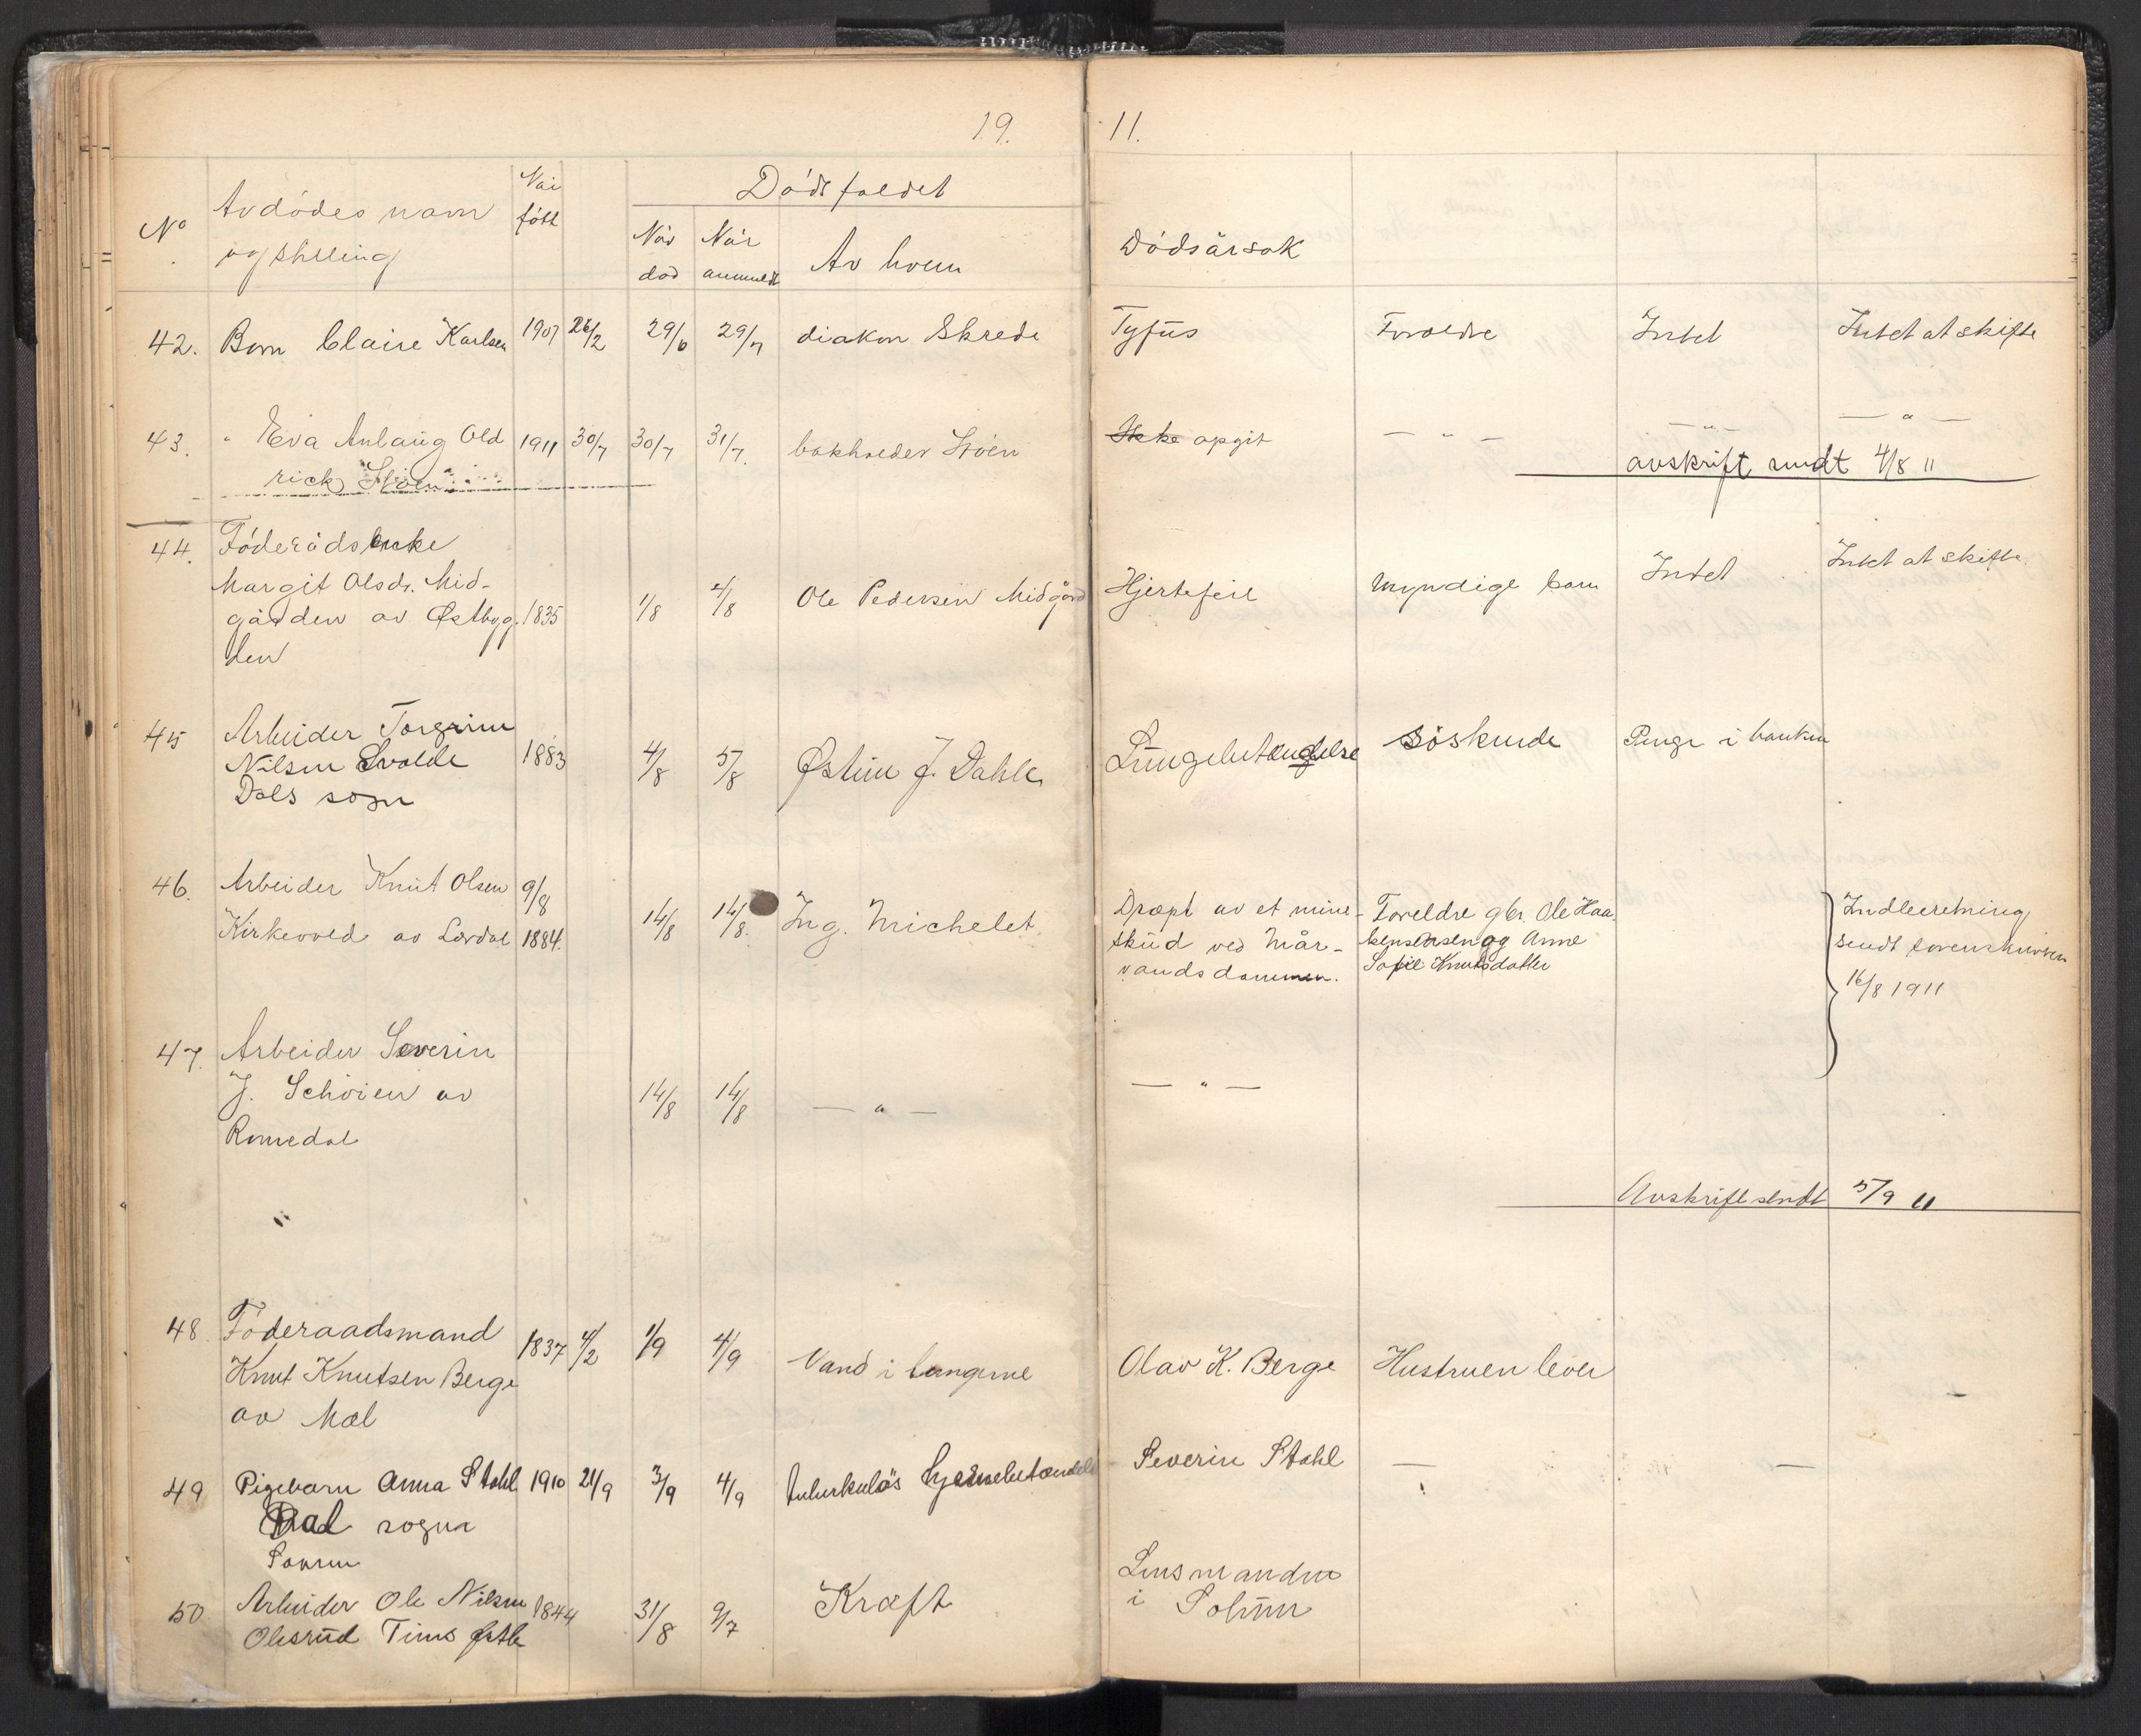 19. 11.
No
Avdödes navn
og stilling
Når
født
Dödsfaldet
Når
död
Når
anmeldt
Av hvem
Dödsårsak
42. Barn Claire Karlsen 1907 26/2 29/6 29/7 diakon Skrede Tyfus Foreldre Intet Intet at skifte
43. " Eva Anlaug Old 1911 30/7 30/7 31/7. bokholder Stöen Ikke opgit — " — — " — — " —
rick Stöen avskrift sendt 4/8 11
44. Föderådsenke
Margit Olsdr. Mid- Intet Intet at skifte
gården av Østbyg. 1835 1/8 4/8 Ole Pedersen Midgård Hjertefeil Myndige barn
den
45 Arbeider Torgrim
Nilsen 1883 4/8 5/8 Østein J. Dahle Lungebetendelse Söskende Penge i banken
Dals sogn
46. Arbeider Knut Olsen 9/8 14/8 14/8. Ing. Michelet Dræpt av et mine- Foreldre gbr. Ole Haa- Indberetning
Kirkevold av Lardal 1884. skud ved Mår- kensen og Anne sendt sorenskriveren
vandsdammen. Sofie Knutsdatter 16/8 1911
47. Arbeider Severin
J. Schöien av 14/8 14/8 — " — — " —
Romedal
Avskrift sendt 5/9 11
48. Föderaadsmand
Knut Knutsen Berge 1837 4/2 1/9 4/9 Vand i lungerne Olav K. Berge Hustruen lever —
av Mæl
49 Pigebarn Anna Stahl 1910 21/9 3/9 4/9 tuberkulös hjernebetændelse Severin Stahl — —
Dal sogn
50. Arbeider Ole Nilsen 1844 31/8 9/7 Kræft Lensmanden
Olesrud Tinns i Solum